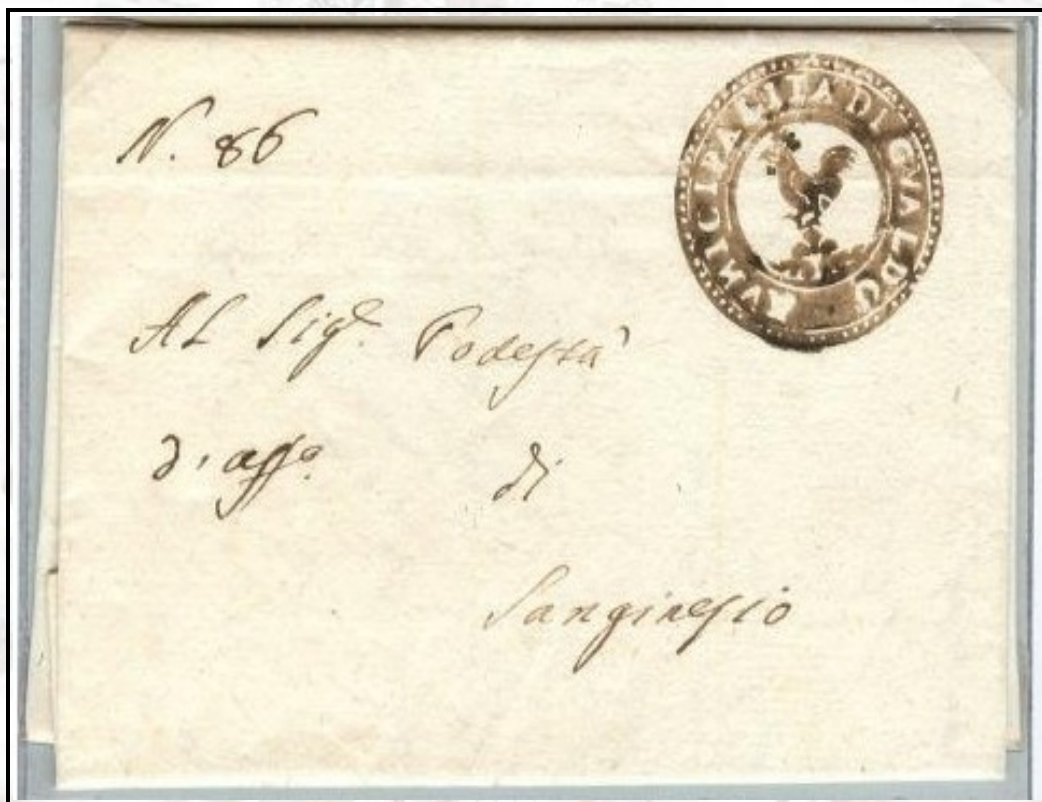 N. 86
MVNICIPALITA DI GVALDO
Al Sig.r Podestà
d'Uff.o di
Sanginesio